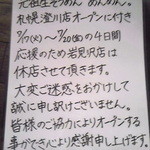 元祖生そうめん めんめん。
札幌澄川店オープンに付き
7/17(火)~7/20(金)の4日間
応援のため岩見沢店は
休店させて頂きます。
大変ご迷惑をおかけして
誠に申し訳ございません。
皆様のご協力によりオープンする
事ができ心より感謝申し上げます。